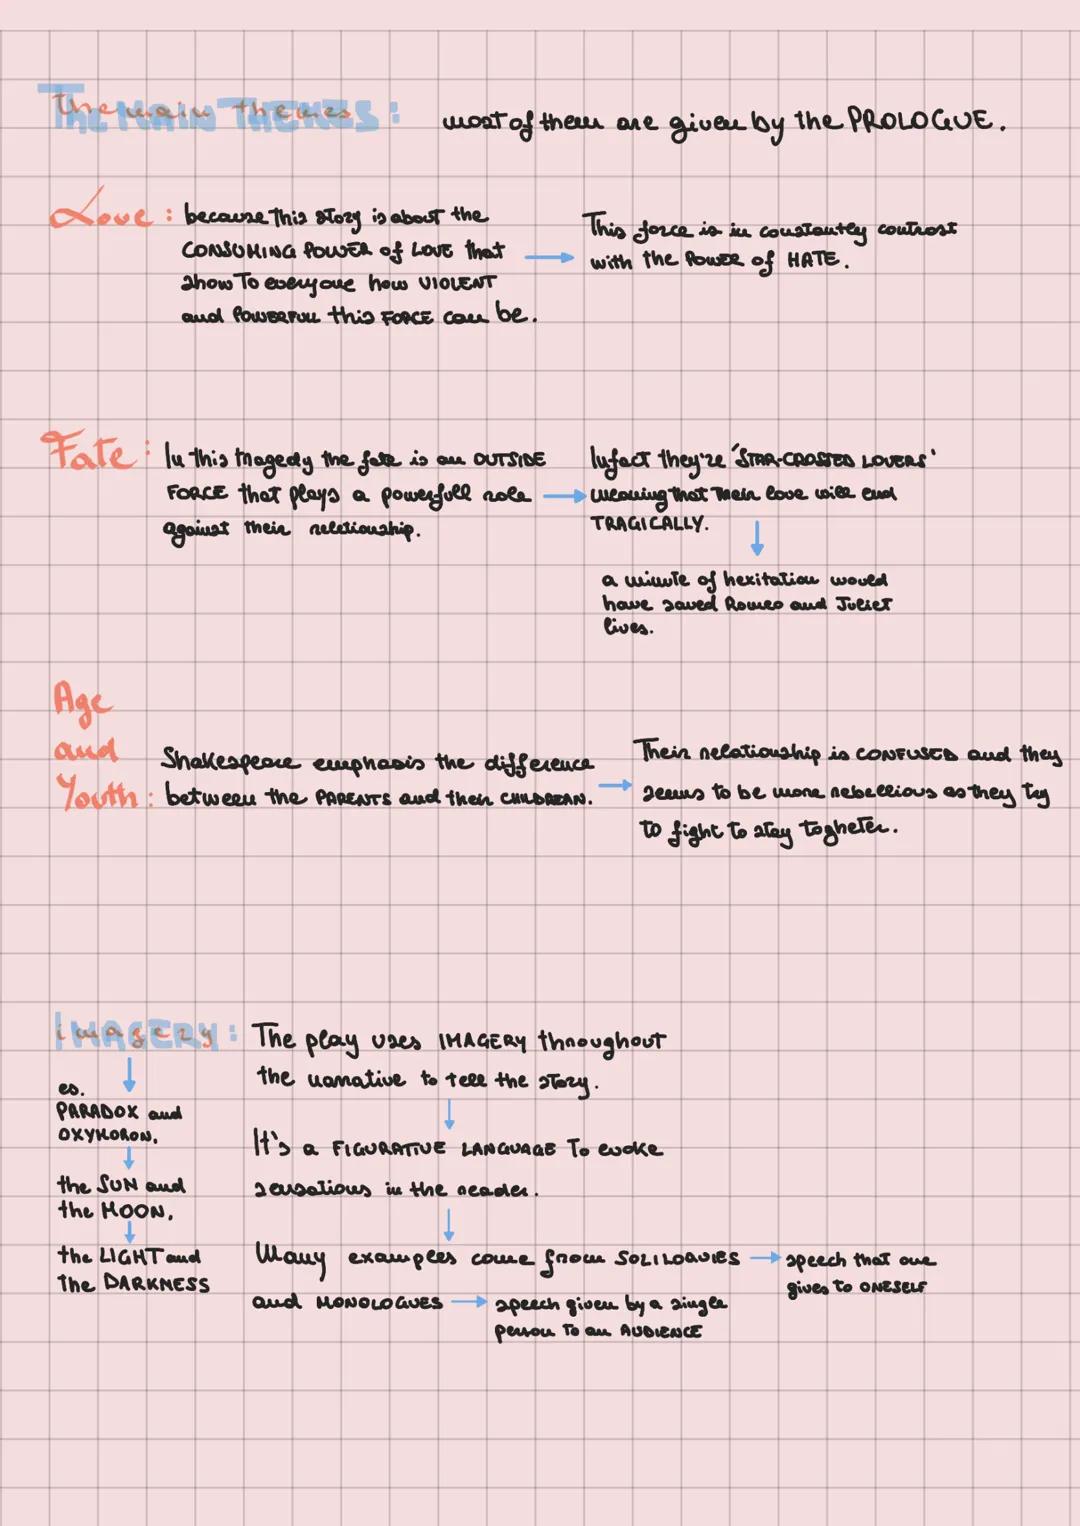 The main themes: most of them are given by the PROLOGUE.
THE MAIN THEMES:
Love: because this story is about the
CONSUMING POWER of LOVE that
show To everyone how VIOLENT
and POWERFULL this FORCE can be.
This force is in constantly contrast
with the POWER of HATE.
Fate: In this tragedy the fate is an OUTSIDE
FORCE that plays a powerfull role
against their reletionship.
Infact they're 'STAR-CROSSED LOVERS'
meaning that Their love will end
TRAGICALLY.
a minute of hexitation would
have saved Romeo and Juliet
lives.
Age
and
Youth:
Shakespeare emphasis the difference
between the PARENTS and their CHILDREAN.
Their relationship is CONFUSED and they
seems to be more rebellious as they try
to fight to stay togheter.
imagery:
IMAGERY:
The play uses IMAGERY throughout
the narrative to tell the story.
It's a FIGURATIVE LANGUAGE To evoke
sensations in the reader.
Many examples come from SOLILOQUIES
speech that one
gives to ONESELF
and MONOLOGUES
speech given by a single
person To an AUDIENCE
es.
PARADOX and
OXYMORON,
the SUN and
the MOON,
the LIGHT and
the DARKNESS